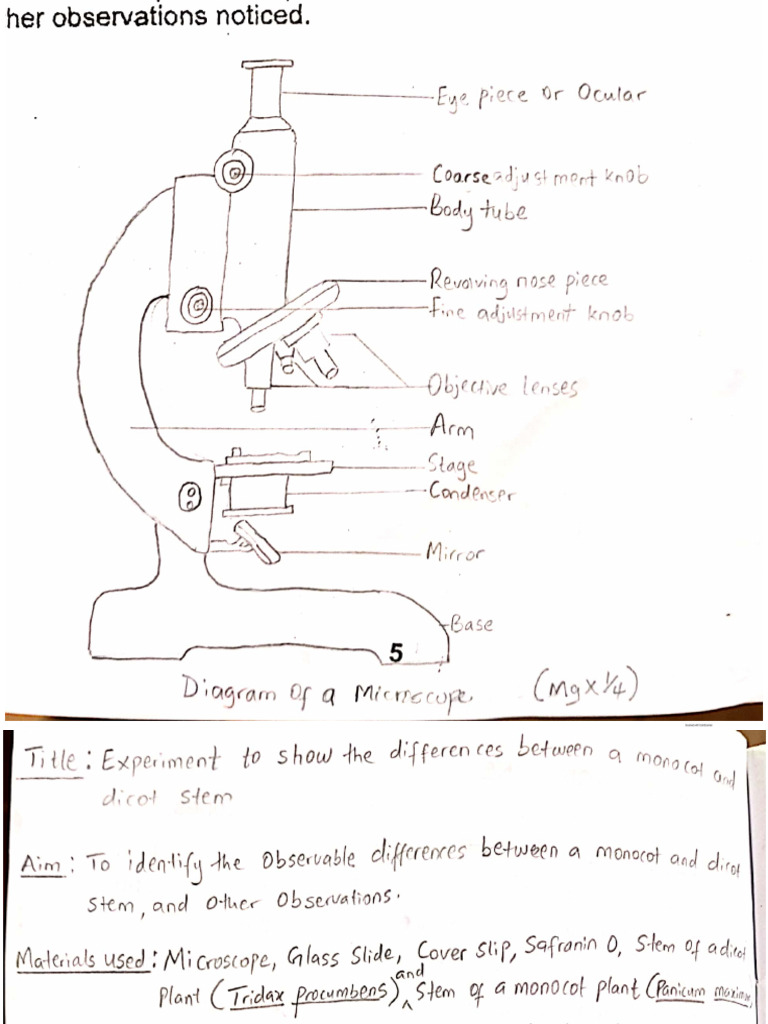 her observations noticed.
Eye piece or Ocular
Coarse adjustment knob
Body tube
Revolving nose piece
Fine adjustment knob
Objective lenses
Arm
Stage
Condenser
Mirror
Base
5
Diagram of a Microscope. (Mg x 1/4)
Title: Experiment to show the differences between a monocot and
dicot stem
Aim: To identify the Observable differences between a monocot and dicot
stem, and other Observations.
Materials used: Microscope, Glass Slide, Cover Slip, Safranin O, Stem of a dicot
plant (Tridax procumbens) and Stem of a monocot plant (Panicum